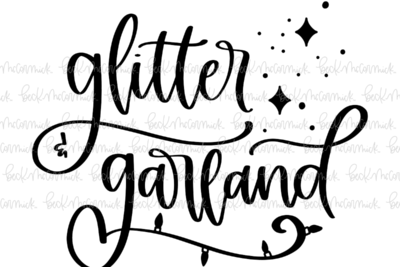 glitter
&
garland